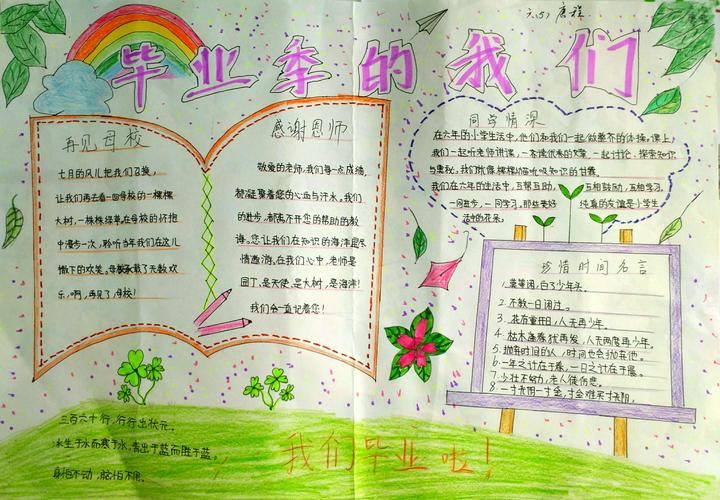 六(5) 唐程
毕业季的我们
再见母校
七月的风儿把我们召唤,
让我们再去看一回母校的一棵棵
大树,一株株绿草,在母校的怀抱
中漫步一次,聆听当年我们在这儿
撒下的欢笑。母校承载了无数欢
乐,啊,再见了,母校!
感谢恩师
敬爱的老师,我们每一点成绩,
都凝聚着您的心血与汗水。我们
的进步,都离不开您的帮助的教
诲。您让我们在知识的海洋里尽
情遨游,在我们心中,老师是
园丁、是天使、是大树、是海洋!
我们会一直记着您!
同学情深
在六年的小学生活中,他们和我们一起/做整齐的体操。课上,
我们一起听老师讲课,一本读优秀的文章,一起讨论,探索知识
与奥秘,我们就像棵棵幼苗吸吮知识的甘露。
我们在六年的生活中,互帮互助,互相鼓励,互相学习,
一同进步,一同学习,那些美好 纯真的友谊是小学生
活中的花朵。
珍惜时间名言
1、莫等闲,白了少年头。
2、不教一日闲过。
3、花有重开日,人无再少年。
4、枯木逢春犹再发,人无两度再少年。
5、抛弃时间的人,时间也会抛弃他。
6、一年之计在于晨,一日之计在于晨。
7、少壮不努力,老大徒伤悲。
8、一寸光阴一寸金,寸金难买寸光阴。
三百六十行,行行出状元。
冰生于水而寒于水,青出于蓝而胜于蓝。
身怕不动,脑怕不用。
我们毕业啦!